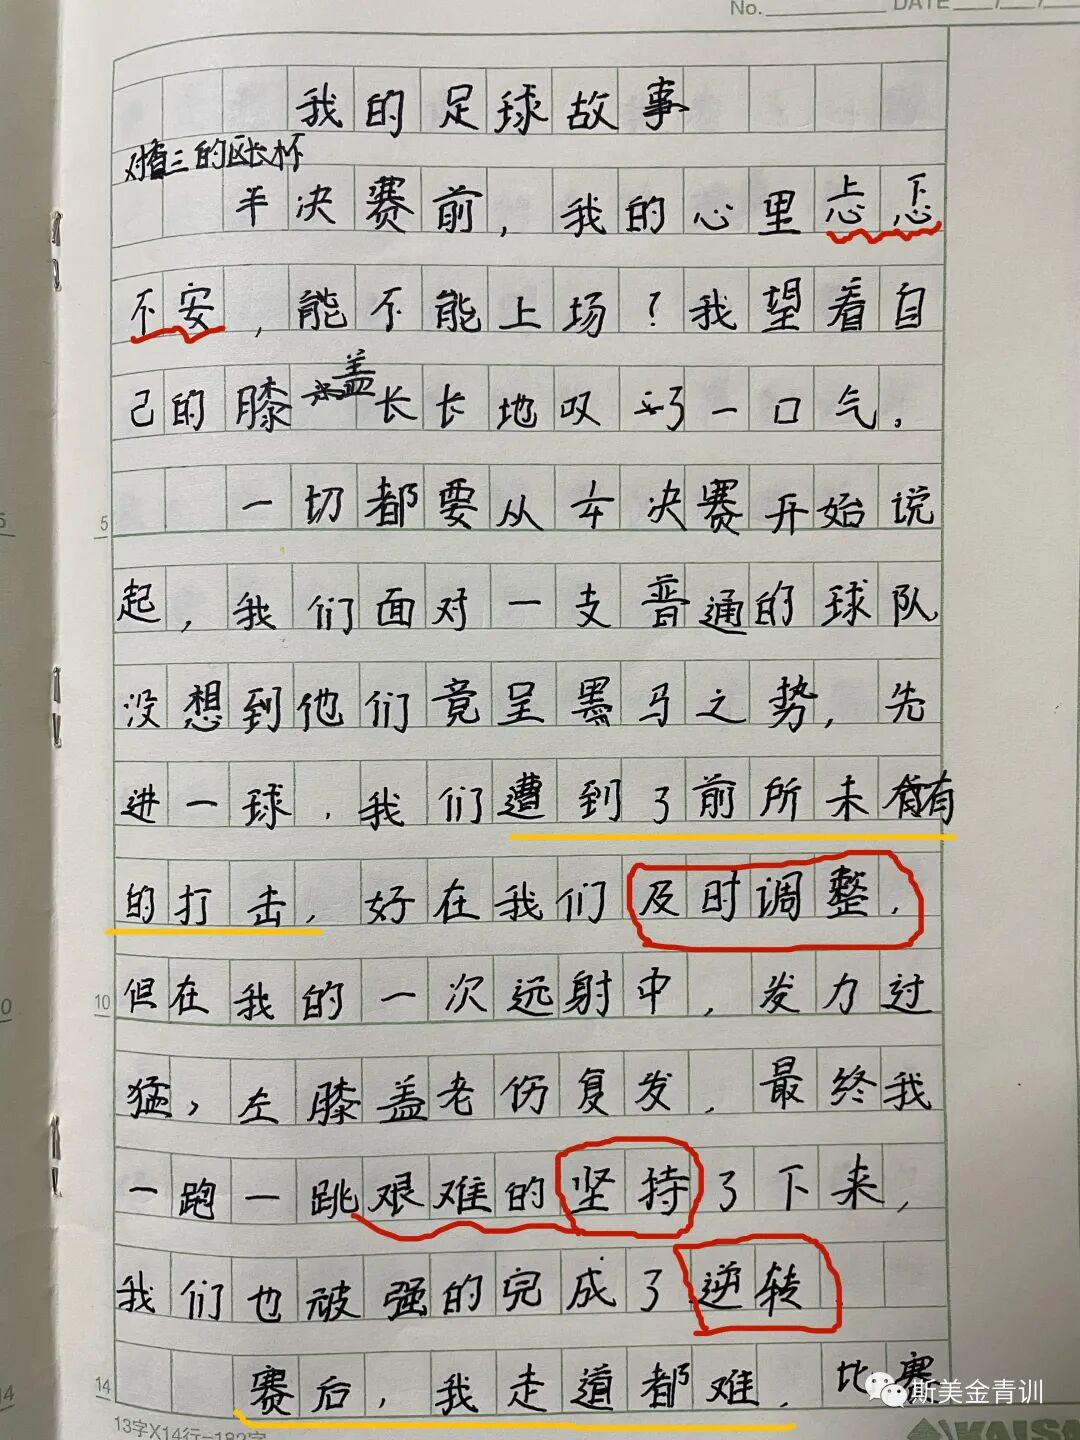 No. DATE / /
我的足球故事
对育三的区长杯
半决赛前，我的心里忐忑
不安，能不能上场？我望着自
己的膝盖长长地叹了一口气。
一切都要从¼决赛开始说
起，我们面对一支普通的球队
没想到他们竟呈墨马之势，先
进一球，我们遭到了前所未有
的打击，好在我们及时调整，
但在我的一次远射中，发力过
猛，左膝盖老伤复发，最终我
一跑一跳艰难的坚持了下来，
我们也被强的完成了逆转
赛后，我走道都难，比赛
5
10
14
13字X14行=182字
斯美金青训
KAISA